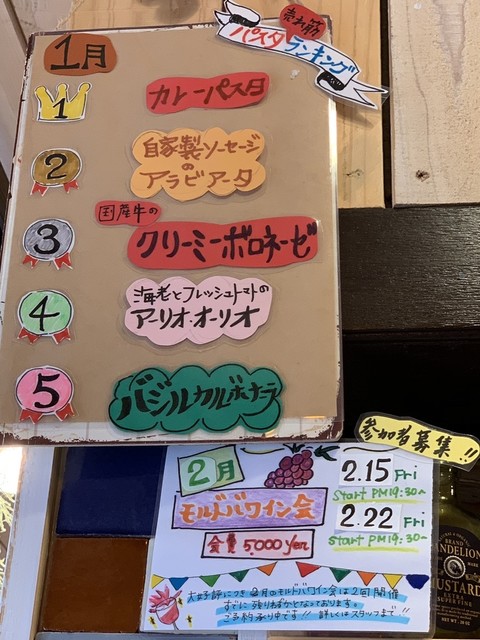 売れ筋
パスタランキング
1月
1
カレーパスタ
2
自家製ソーセージ
の
アラビアータ
3
国産牛の
クリーミーボロネーゼ
4
海老とフレッシュトマトの
アーリオ・オーリオ
5
バジルカルボナーラ
参加者募集!!
2月
モルドバワイン会
会費 5000yen
2.15 Fri
Start PM19:30~
2.22 Fri
Start PM19:30~
大好評につき2月のモルドバワイン会は2回開催
すでに残りわずかとなっております。
ご予約承り中です!! 詳しくはスタッフまで!!
BRAND
DANDELION
MUSTARD